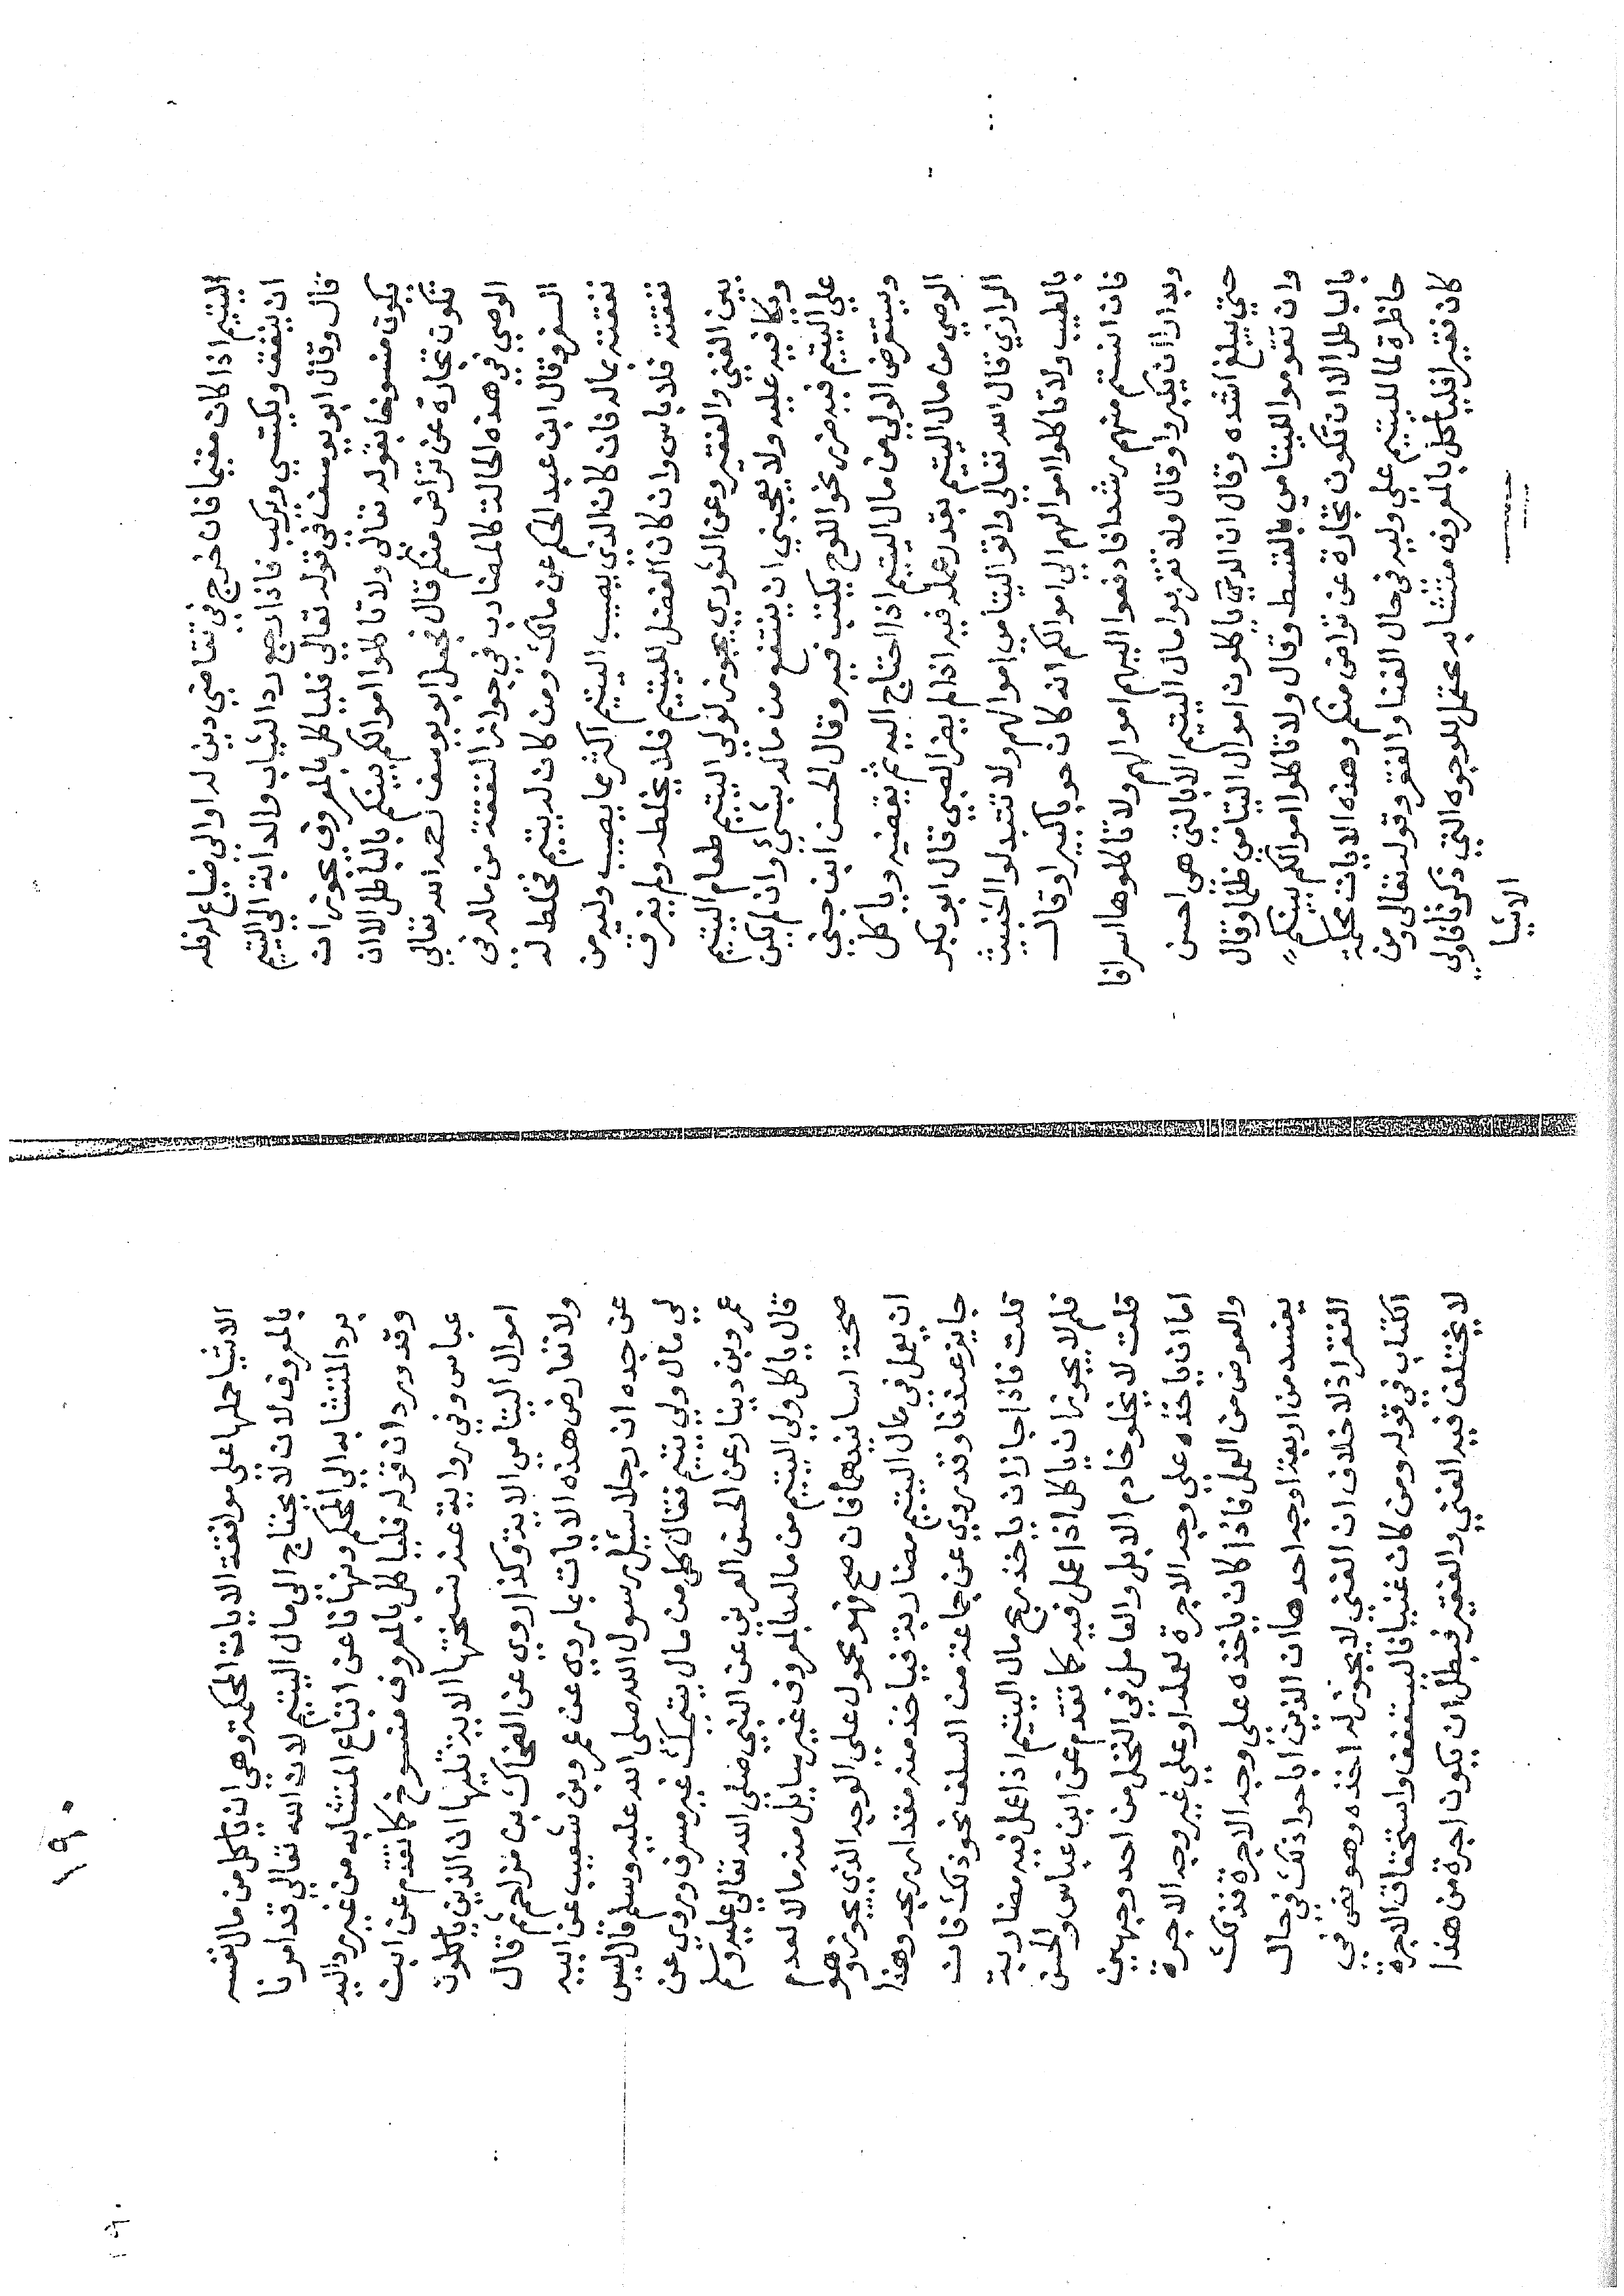 اليتيم اذا كان مقيما فان خرج في تقاضي دين له او الي ضياع له فله
ان ينفق ويكتسي ويركب فاذا رجع رد الثياب والدابة الي اليتيم
قال وقال ابو يوسف في قوله تعالي فليا كل بالمعروف يجوز ان
يكون منسوخا بقوله تعالي ولا تاكلوا اموالكم بينكم بالباطل الا ان
تكون تجارة عن تراض منكم قال فجعل ابو يوسف رحمه الله تعالي
الوصي في هذه الحالة كالمضارب في جواز النفقة من ماله في
السفر وقال ابن عبد الحكم عن مالك ومن كان له يتيم فخلط له
نفقته بماله فان كان الذي يصيب اليتيم اكثر مما يصيب وليه من
نفقته فلا باس وان كان الفضل لليتيم فلا يخلطه ولم يفرق
بين الغني والفقير وعن الثوري يجوز لولي اليتيم طعام اليتيم
ويكا فيه عليه ولا يعجبني ان ينتفع من ماله بشي وان لم يكن
علي اليتيم فيه ضرر نحو اللوح يكتب فيه وقال الحسن ابن حيي
ويستقرض الولي من مال اليتيم اذا احتاج اليه ثم يقضيه ويا كل
الوصي من مال اليتيم بقدر عمله فيه اذا لم يضر الصبي قال ابو بكر
الرازي قال الله تعالي واتو اليتامي اموالهم ولا تتبدلوا الخبيث
بالطيب ولا تاكلوا اموالهم الي اموالكم انه كان حوبا كبيرا وقال
فان انستم منهم رشدا فادفعوا اليهم اموالهم ولا تاكلوها اسرافا
وبدارا ان يكبروا وقال ولا تقربوا مال اليتيم الا بالتي هي احسن
حتي يبلغ اشده وقال ان الذين ياكلون اموال اليتامي ظلما وقال
وان تقوموا لليتامي بالقسط وقال ولا تاكلوا اموالكم بينكم
بالباطل الا ان تكون تجارة عن تراض منكم وهذه الايات محكمة
حاظرة لمال اليتيم علي وليه في حال الغنا والفقر وقوله تعالي ومن
كان فقيرا فليا كل بالمعروف متشابه محتمل للوجوه التي ذكرنا فاولي
الاشيا
١٩٠
الاشيا حملها علي موافقة الايات المحكمة وهي ان ياكل من مال نفسه
بالمعروف لان لا يحتاج الي مال اليتيم لان الله تعالي قد امرنا
برد المتشابه الي المحكم ونهانا عن اتباع المتشابه من غير رد اليه
وقد ورد ان قوله فليا كل بالمعروف منسوخ كما تقدم عن ابن
عباس وفي رواية عنه نسختها الاية تليها ان الذين ياكلون
اموال اليتامي الاية وكذا روي عن الضحاك بن مزاحم ثم قال
ولا تعارض هذه الايات بما روي عن عمرو بن شعيب عن ابيه
عن جده ان رجلا سئيل رسول الله صلي الله عليه وسلم قال ليس
لي مال ولي يتيم فقال كل من مال يتيمك غير مسرف وروي عن
عمرو بن دينار عن الحسن العرني عن النبي صلي الله تعالي عليه وسلم
قال ياكل ولي اليتيم من ماله بالمعروف غير متاثل منه مالا لعدم
صحة اسانيدهما فان صح فهو محمول علي الوجه الذي يجوز وهو
ان يعمل في مال اليتيم مضاربة فياخذ منه مقدار ربحه وهذا
جايز عندنا وقد روي عن جماعة من السلف نحو ذلك فان
قلت فاذا جاز ان ياخذ ربح مال اليتيم اذا عمل فيه مضاربة
فلم لا يجوز ان ياكل اذا عمل فيه كما تقدم عن ابن عباس والحسن
قلت لا يخلو خادم الابل والعامل في النخل من احد وجهين
اما ان ياخذه علي وجه الاجرة لعمله او علي غير وجه الاجرة
والعوض من العمل فاذا كان ياخذه علي وجه الاجرة فذلك
يفسد من اربعة اوجه احدها ان الذين اباحوا ذلك في حال
الفقر اذ لا خلاف ان الغني لا يجوز له اخذه وهو نص في
الكتاب في قوله ومن كان غنيا فاليستعفف واستحقاق الاجرة
لا يختلف فيه الغني والفقير فبطل ان يكون اجرة من هذا